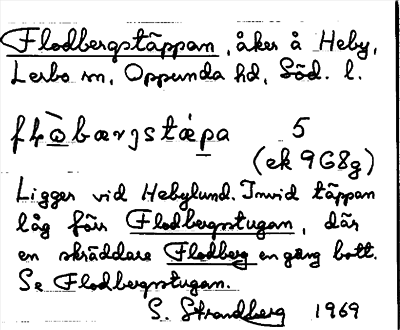 Flodbergstäppan, åker å Heby,
Lerbo sn, Oppunda hd, Söd. l.
fḷò̠bærjstẹ̀pa 5
(ek 9G8g)
Ligger vid Hebylund. Invid täppan
låg förr Flodbergstugan, där
en skräddare Flodberg en gång bott.
Se Flodbergstugan.
S. Strandberg 1969